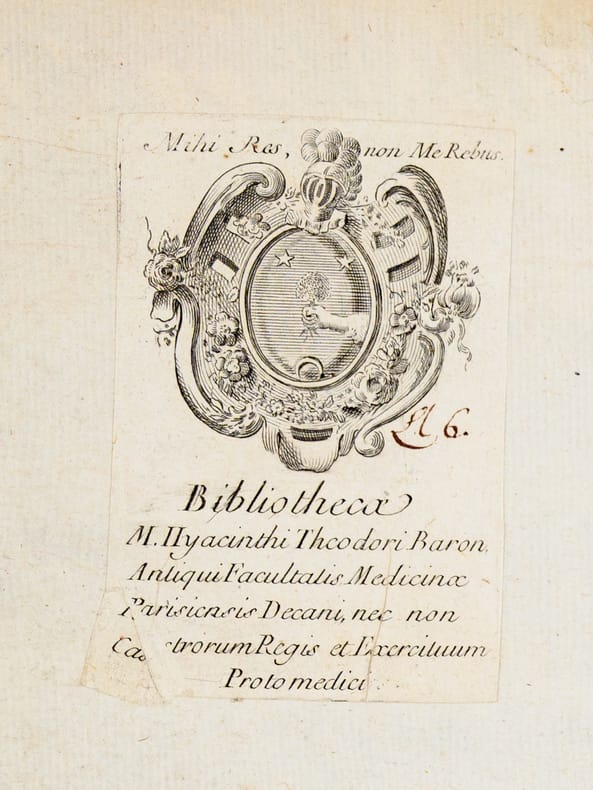 Mihi Res, non Me Rebus.
A 6.
Bibliothecæ
M. Hyacinthi Theodori Baron,
Antiqui Facultatis Medicinæ
Parisiensis Decani, nec non
Castrorum Regis et Exercituum
Protomedici